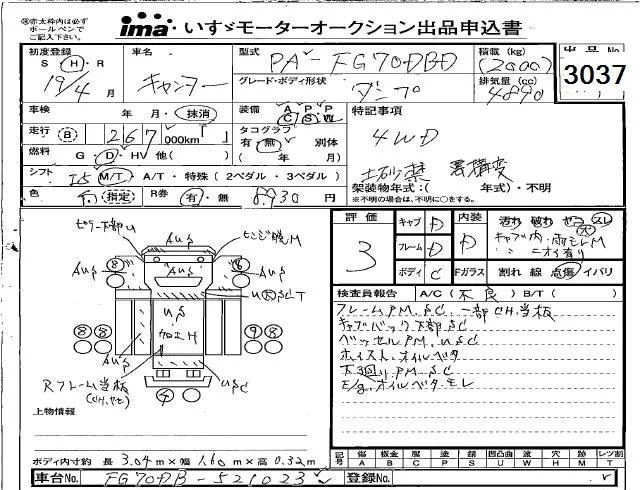 ※赤太枠内は必ずボールペンでご記入下さい。
ima いすゞモーターオークション出品申込書
出品No.
3037
初度登録 S H R
19/4 月
車名
キャンター
型式 PA-FG70DBD
積載(kg) (2000)
グレード・ボディ形状 ダンプ
排気量(cc) 4890
車検 年 月・抹消
装備 A C P S P W
特記事項
4WD
土砂禁 要構変
走行 B 267 000km
タコグラフ 有・無 別体
( 年 月)
燃料 G・D・HV 他( )
シフト I5 M/T・A/T・特殊(2ペダル・3ペダル)
架装物年式:( 年式)・不明
※不明の場合は、不明に○をする。
色 (指定) R券 有・無 8930 円
評価 3
キャブ D
フレーム D
ボディ C
内装 D
Fガラス
汚れ 破れ ヤコ スレ
キャブ内・雨モレM
〃 ニオイ有り
割れ 線 点傷 イバリ
検査員報告 A/C(不良) B/T( )
フレームP.M.S.C.一部CH.当板
キャブバック下部.S.C
ベッセルP.M.U.S.C
ホイスト.オイルベタ
下回りP.M.S.C
E/g.オイルベタ.モレ
ピラー下部U
AUS
ヒンジ錆M
AUS
AUS
8
8
USC
加工H
8 8
9 8
AUS
AUS
USC
Rフレーム当板
4
上物情報
ボディ内寸約 長 3.04m×幅 1.60m×高 0.32m
記号 傷A 板金B 腐C 塗P 錆S 凹凸曲U 波W 穴H 跡M レンズ割T
車台No. FG70DB-521023
登録No.